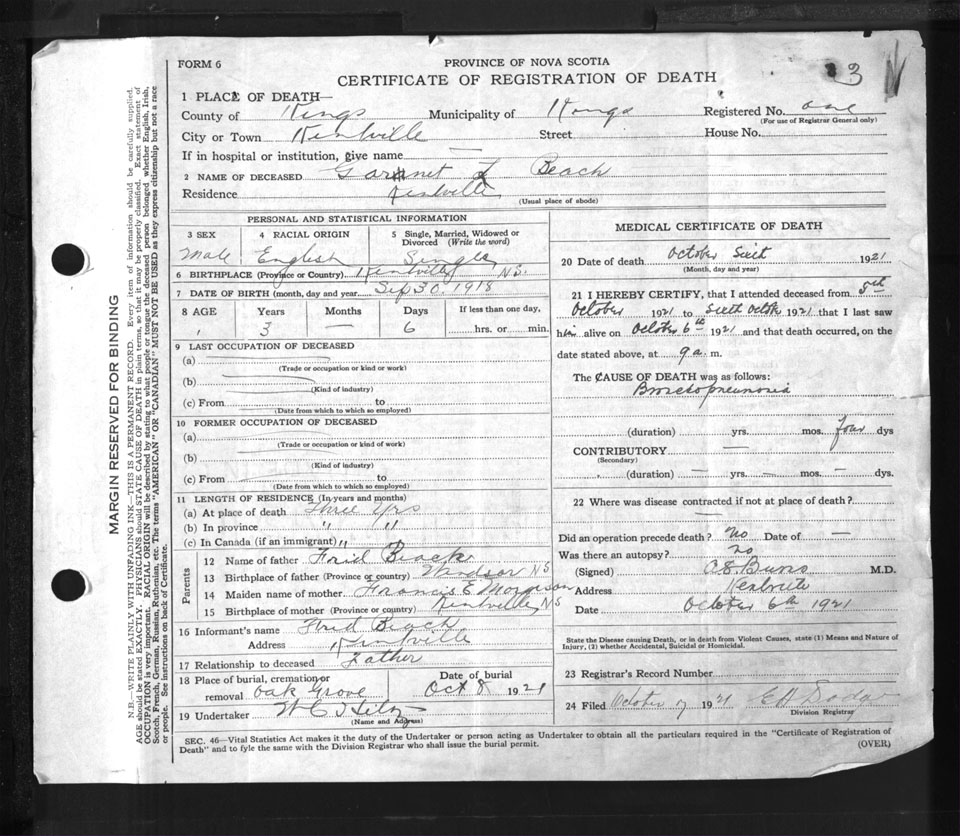 FORM 6
PROVINCE OF NOVA SCOTIA
CERTIFICATE OF REGISTRATION OF DEATH
3
1 PLACE OF DEATH—
County of Kings Municipality of Kings Registered No. one
(For use of Registrar General only)
City or Town Kentville Street House No.
If in hospital or institution, give name —
2 NAME OF DECEASED Garnet L Beach
Residence Kentville
(Usual place of abode)
PERSONAL AND STATISTICAL INFORMATION
3 SEX 4 RACIAL ORIGIN 5 Single, Married, Widowed or Divorced (Write the word)
Male English Single
6 BIRTHPLACE (Province or Country) Kentville NS.
7 DATE OF BIRTH (month, day and year) Sep 30 1918
8 AGE Years Months Days If less than one day,
3 — 6 hrs. or min.
9 LAST OCCUPATION OF DECEASED
(a)
(Trade or occupation or kind or work)
(b)
(Kind of industry)
(c) From to
(Date from which to which so employed)
10 FORMER OCCUPATION OF DECEASED
(a)
(Trade or occupation or kind of work)
(b)
(Kind of industry)
(c) From to
(Date from which to which so employed)
11 LENGTH OF RESIDENCE (In years and months)
(a) At place of death Three Yrs
(b) In province " "
(c) In Canada (if an immigrant) "
Parents
12 Name of father Beach
13 Birthplace of father (Province or country) Windsor NS
14 Maiden name of mother Francis E
15 Birthplace of mother (Province or country) Kentville NS
16 Informant's name Beach
Address Kentville
17 Relationship to deceased Father
18 Place of burial, cremation or removal Oak Grove
Date of burial Oct 8 1921
19 Undertaker W C Hiltz
(Name and Address)
MEDICAL CERTIFICATE OF DEATH
20 Date of death October Sixt 1921
(Month, day and year)
21 I HEREBY CERTIFY, that I attended deceased from 5th
October 1921 to Sixth Octob 1921 that I last saw
him alive on October 6th 1921 and that death occurred, on the
date stated above, at 9 a. m.
The CAUSE OF DEATH was as follows:
Bronchopneumonia
(duration) yrs. mos. four dys
CONTRIBUTORY —
(Secondary)
(duration) — yrs. — mos. — dys.
22 Where was disease contracted if not at place of death?
—
Did an operation precede death? No Date of —
Was there an autopsy? no
(Signed) Burns M.D.
Address Kentville
Date October 6th 1921
State the Disease causing Death, or in death from Violent Causes, state (1) Means and Nature of
Injury, (2) whether Accidental, Suicidal or Homicidal.
23 Registrar's Record Number
24 Filed October 7 1921
Division Registrar
SEC. 46—Vital Statistics Act makes it the duty of the Undertaker or person acting as Undertaker to obtain all the particulars required in the "Certificate of Registration of
Death" and to fyle the same with the Division Registrar who shall issue the burial permit.
(OVER)
MARGIN RESERVED FOR BINDING
N.B.—WRITE PLAINLY WITH UNFADING INK—THIS IS A PERMANENT RECORD. Every item of information should be carefully supplied.
AGE should be stated EXACTLY. PHYSICIANS should STATE CAUSE OF DEATH in plain terms, so that it may be properly classified. Exact statement of
OCCUPATION is very important. RACIAL ORIGIN will be described by stating to what people or tongue the deceased person belonged whether English, Irish,
Scotch, French, German, Russian, Ruthenian, etc. The terms "AMERICAN" or "CANADIAN" MUST NOT BE USED as they express citizenship but not a race
or people. See instructions on back of Certificate.